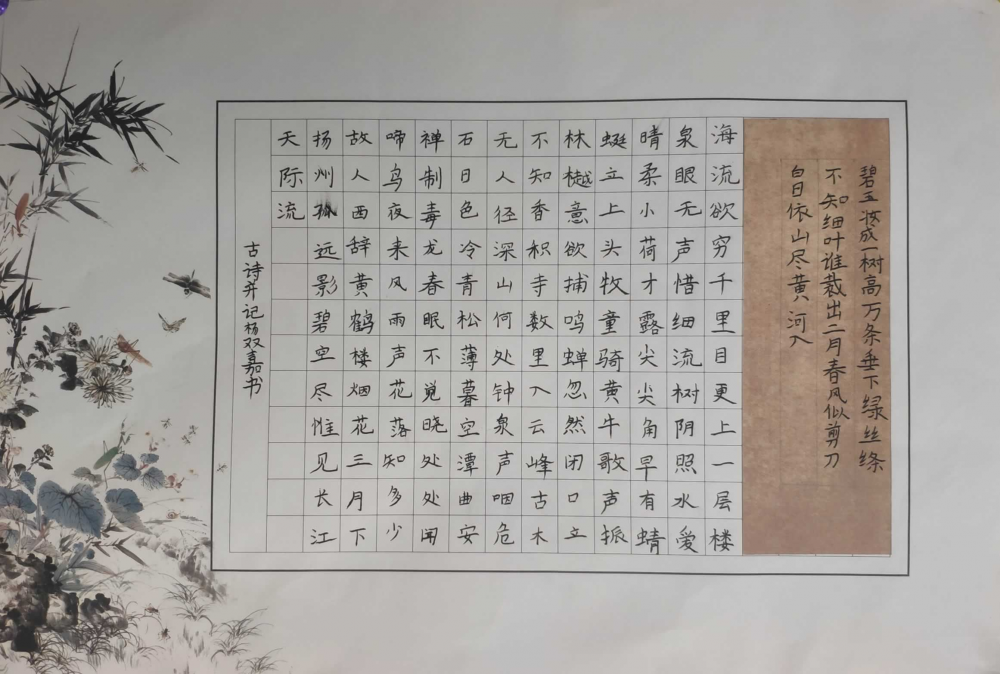 碧玉妆成一树高万条垂下绿丝绦
不知细叶谁裁出二月春风似剪刀
白日依山尽黄河入
海流欲穷千里目更上一层楼
泉眼无声惜细流树阴照水爱
晴柔小荷才露尖尖角早有蜻
蜓立上头牧童骑黄牛歌声振
林樾意欲捕鸣蝉忽然闭口立
不知香积寺数里入云峰古木
无人径深山何处钟泉声咽危
石日色冷青松薄暮空潭曲安
禅制毒龙春眠不觉晓处处闻
啼鸟夜来风雨声花落知多少
故人西辞黄鹤楼烟花三月下
扬州孤远影碧空尽惟见长江
天际流
古诗并记杨双嘉书